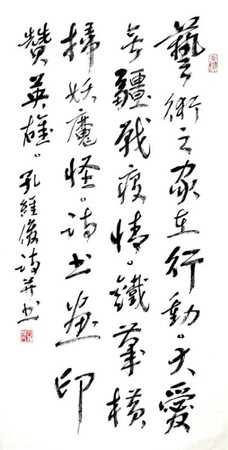 藝術之家在行動。大愛
無疆戰疫情。鐵筆橫
掃妖魔怪。詩书畫印
贊英雄。孔經俊詩并书